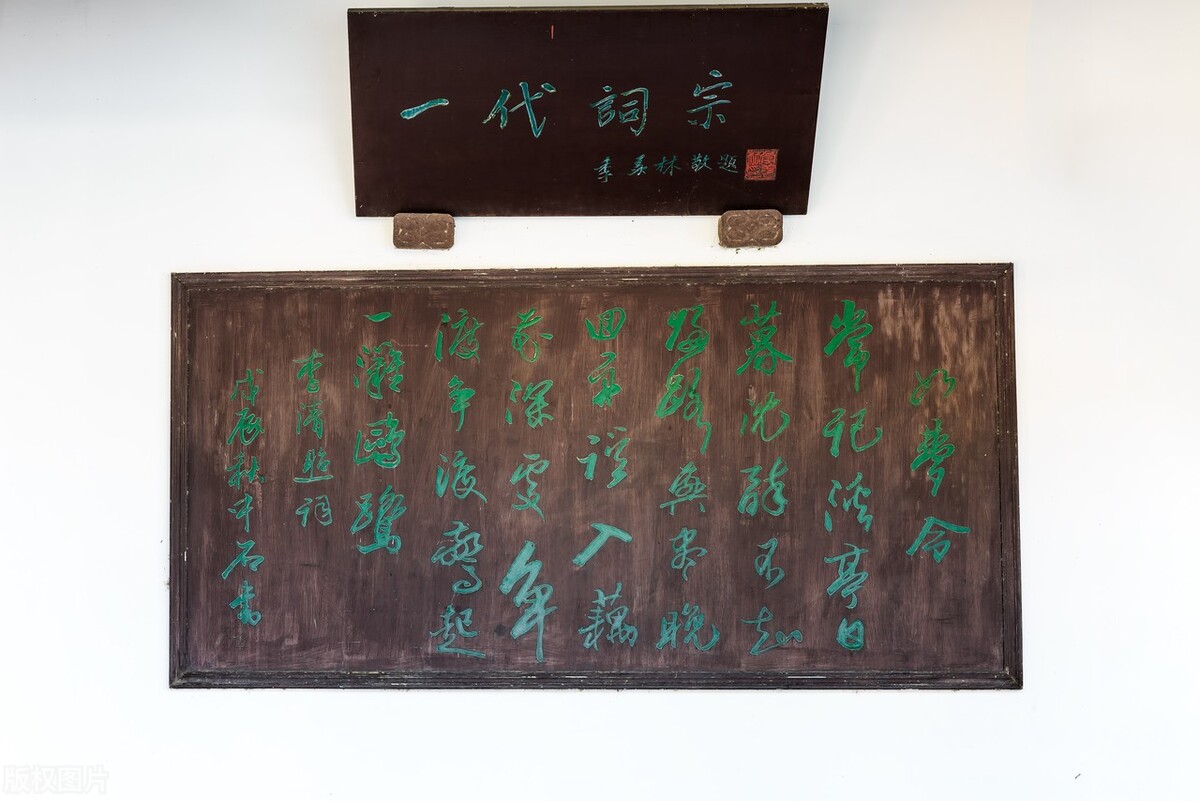 一代詞宗
季羡林敬題
如夢令
常記溪亭日
暮沈醉不知
歸路興盡晚
回舟誤入藕
花深處争
渡争渡驚起
一灘鷗鷺
李清照詞
戊辰秋中石書
版权图片